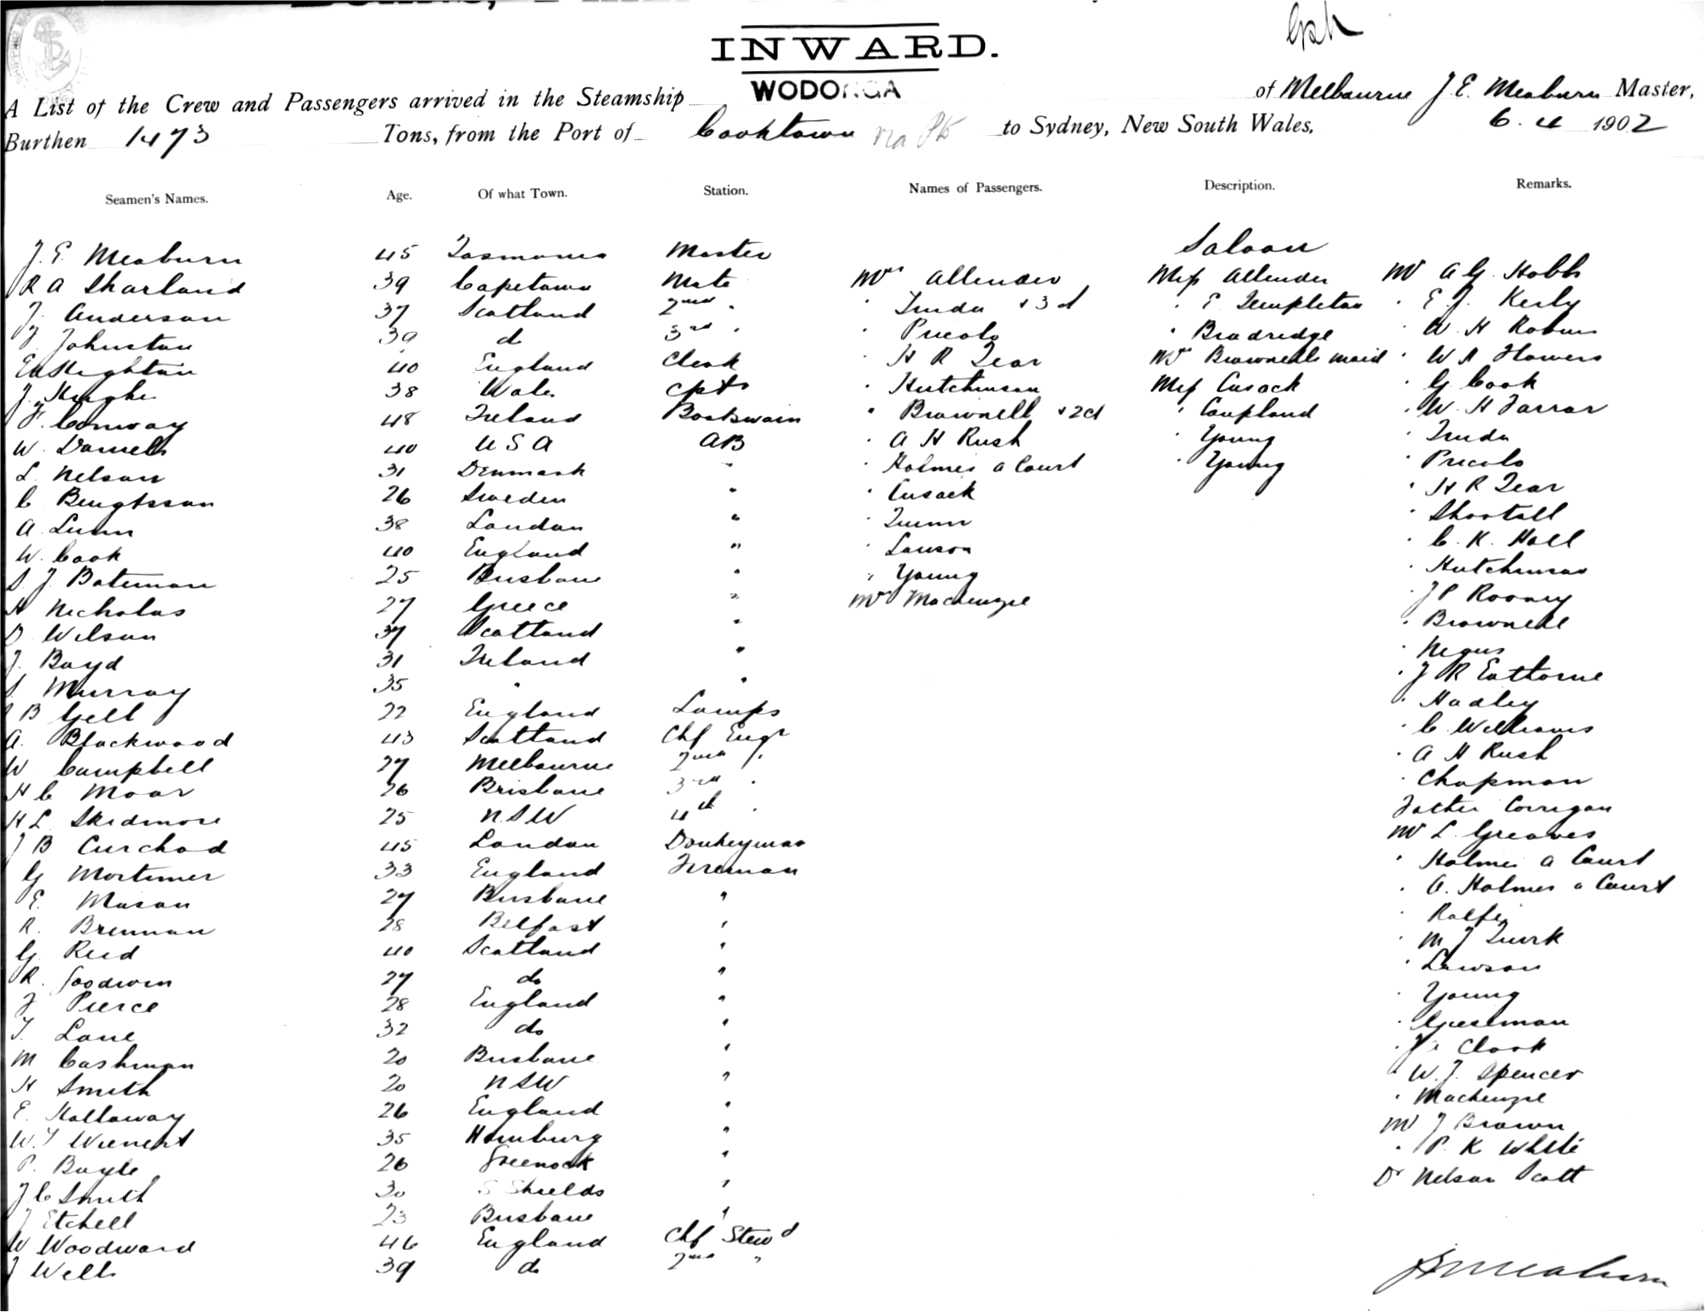 INWARD.
A List of the Crew and Passengers arrived in the Steamship WODONGA of Melbourne J. E. Meaburn Master,
Burthen 1473 Tons, from the Port of Cooktown via to Sydney, New South Wales, 6. 4 1902
Seamen's Names. Age. Of what Town. Station. Names of Passengers. Description. Remarks.
Saloon
J. E. Meaburn 45 Tasmania Master
R A Sharland 39 Capetown Mate Mrs Allender Miss Allender Mr A G. Hobbs
J. Anderson 37 Scotland 2nd " " + 3 d " E Templeton " E J.
J. Johnston 39 do 3rd " " Piccolo " Bradridge " W H
40 England Clerk " H R Tear Mrs Brownells maid " W A Flowers
J. Hughes 38 Wales Cpts " Hutchinson Miss Cusack " G Cook
F. Conway 48 Ireland Boatswain " Brownell + 2 d " Coupland " W. H Farrar
W. Daniels 40 U S A AB " A H Rush " Young "
L. Nelson 31 Denmark " " Holmes a Court " Young " Piccolo
C Bengtsson 26 Sweden " " Cusack " H R Tear
A. Lunn 38 London " " Quinn " Shortall
W. Cook 40 England " " Lawson " C. K. Hall
S J. Bateman 25 Brisbane " " Young " Hutchinson
H Nicholas 27 Greece " Mrs Mackenzie " J P Rooney
D Wilson 37 Scotland " " Brownell
J. Boyd 31 Ireland " " Negus
S Murray 35 " " " J R
J B Gell 22 England Lamps " Hadley
A. Blackwood 43 Scotland Chf Engr " C. Williams
W Campbell 27 Melbourne 2nd " " A H Rush
H C Moar 26 Brisbane 3rd " " Chapman
H L. Skidmore 25 N.S.W 4th " Father Corrigan
J B Curchod 45 London Donkeyman Mr L. Greaves
G Mortimer 33 England Fireman " Holmes a Court
E. Mason 27 Brisbane " " A. Holmes a Court
R. Brennan 28 Belfast " " Rolfe
G Reid 40 Scotland " " M J Quirk
R. Goodwin 27 do " " Lawson
J Pierce 28 England " " Young
T. Lane 32 do " " Gieseman
M Cashman 20 Brisbane " " Clark
H Smith 20 N S W " " W. J. Spencer
E. Hallaway 26 England " " Mackenzie
W. J Wienert 35 Hamburg " Mr J Brown
P. Boyle 26 Greenock " " P. K White
J C Smith 30 S Shields " Dr Nelson Scott
J Etchell 23 Brisbane "
W Woodward 46 England Chf Stewd
J Wells 39 do 2nd "
J E Meaburn